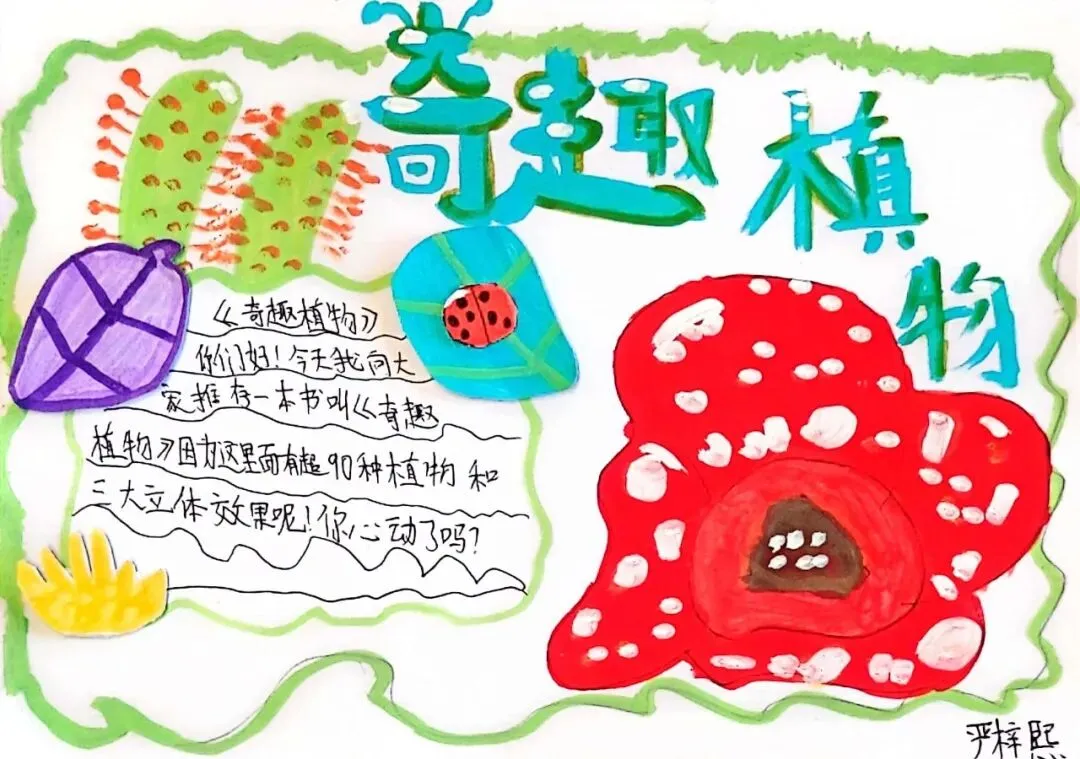 奇趣植物
《奇趣植物》
你们好!今天我向大
家推存一本书叫《奇趣
植物》因为这里面有超90种植物和
三大立体效果呢!你心动了吗?
严梓熙